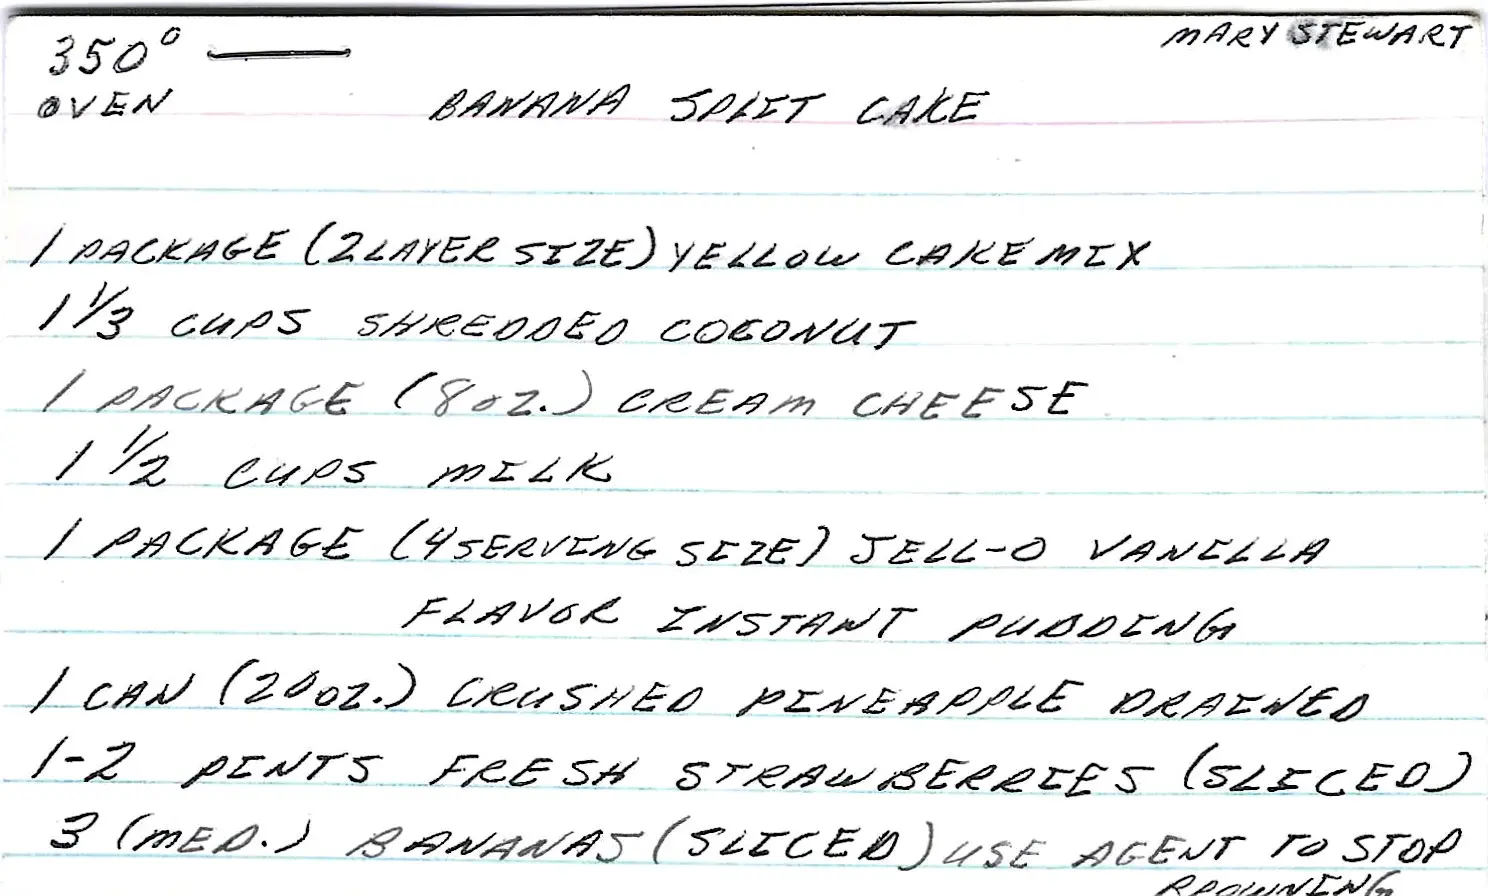 350° — MARY STEWART
OVEN BANANA SPLIT CAKE
1 PACKAGE (2 LAYER SIZE) YELLOW CAKE MIX
1 1/3 CUPS SHREDDED COCONUT
1 PACKAGE (8 oz.) CREAM CHEESE
1 1/2 CUPS MILK
1 PACKAGE (4 SERVING SIZE) JELL-O VANILLA
FLAVOR INSTANT PUDDING
1 CAN (20 oz.) CRUSHED PINEAPPLE DRAINED
1-2 PINTS FRESH STRAWBERRIES (SLICED)
3 (MED.) BANANAS (SLICED) USE AGENT TO STOP
BROWNING